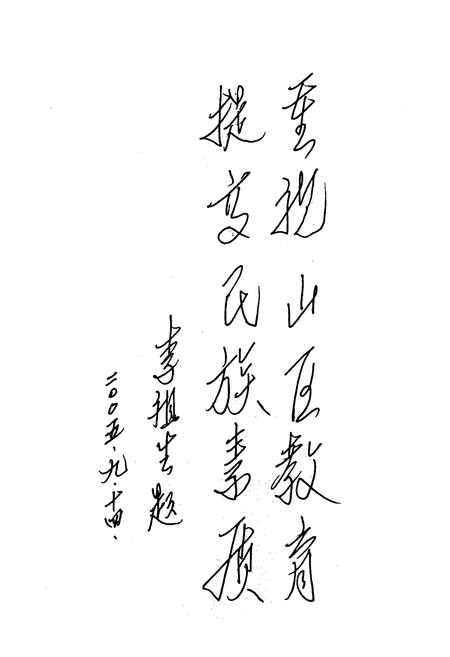 重视山区教育
提高民族素质
李祖生题
二00五.九.十四.